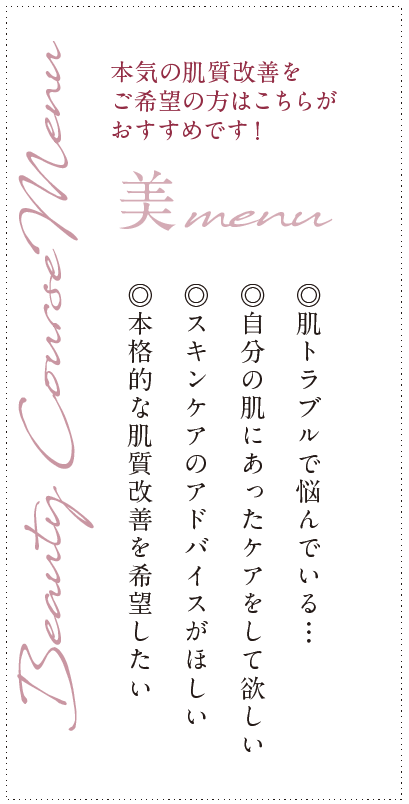 Beauty Course Menu
本気の肌質改善を
ご希望の方はこちらが
おすすめです！
美menu
◎肌トラブルで悩んでいる…
◎自分の肌にあったケアをして欲しい
◎スキンケアのアドバイスがほしい
◎本格的な肌質改善を希望したい